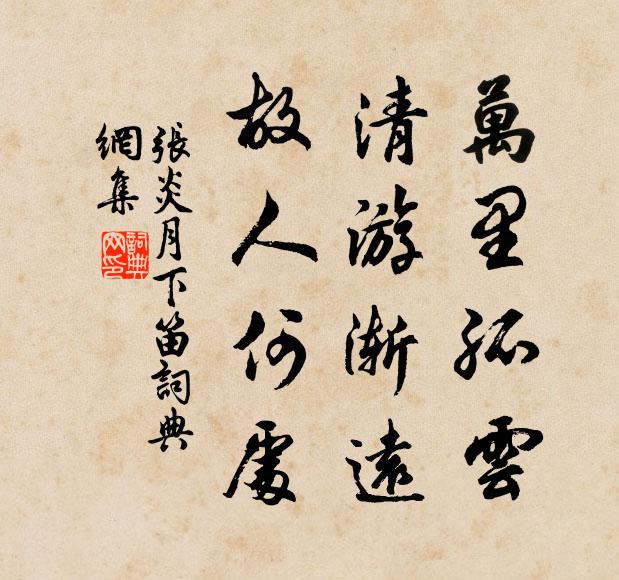 萬里孤雲
清游漸遠
故人何處
張炎月下笛詞典
網集
詞典
网印